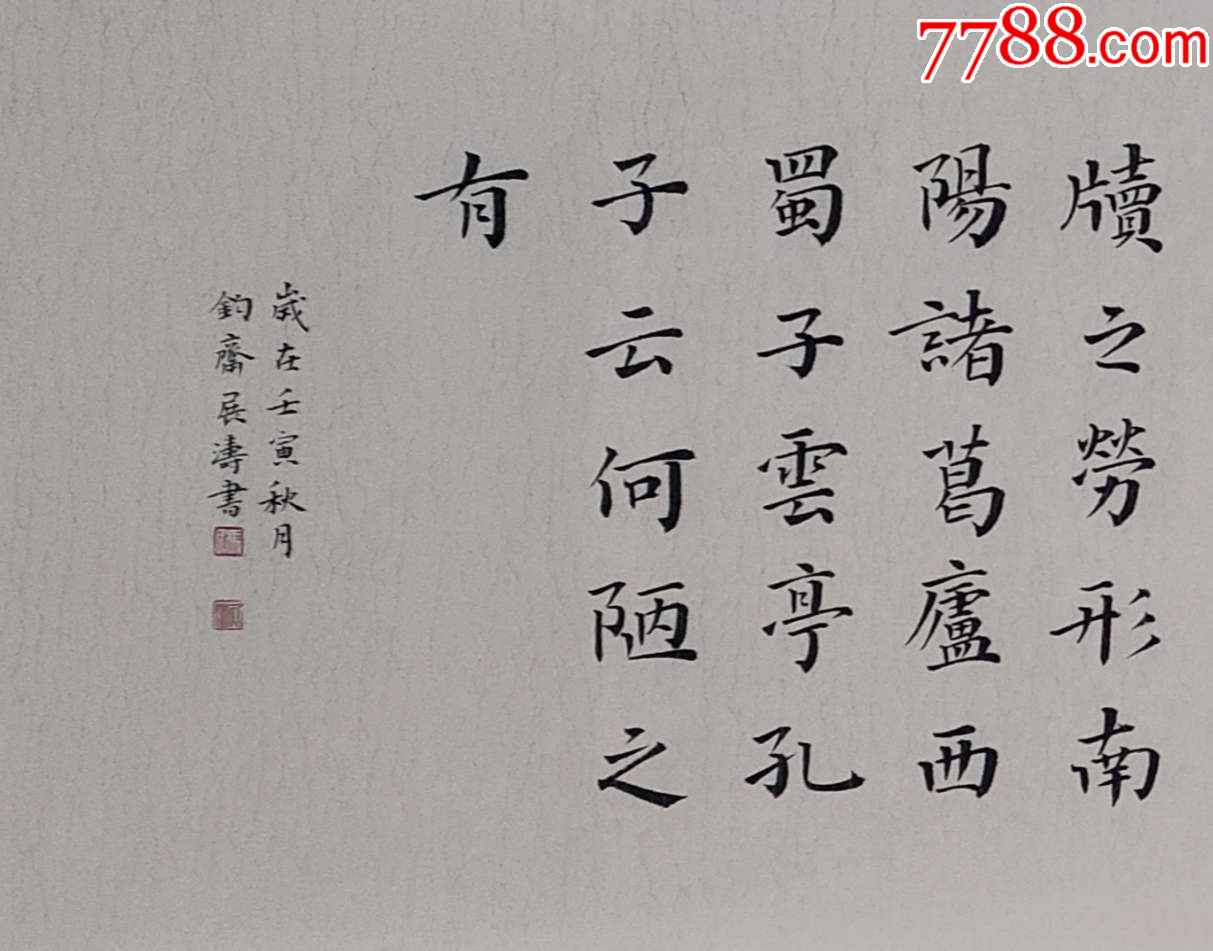 7788.com
牘之勞形南
陽諸葛廬西
蜀子雲亭孔
子云何陋之
有
歲在壬寅秋月
鈞齋展濤書